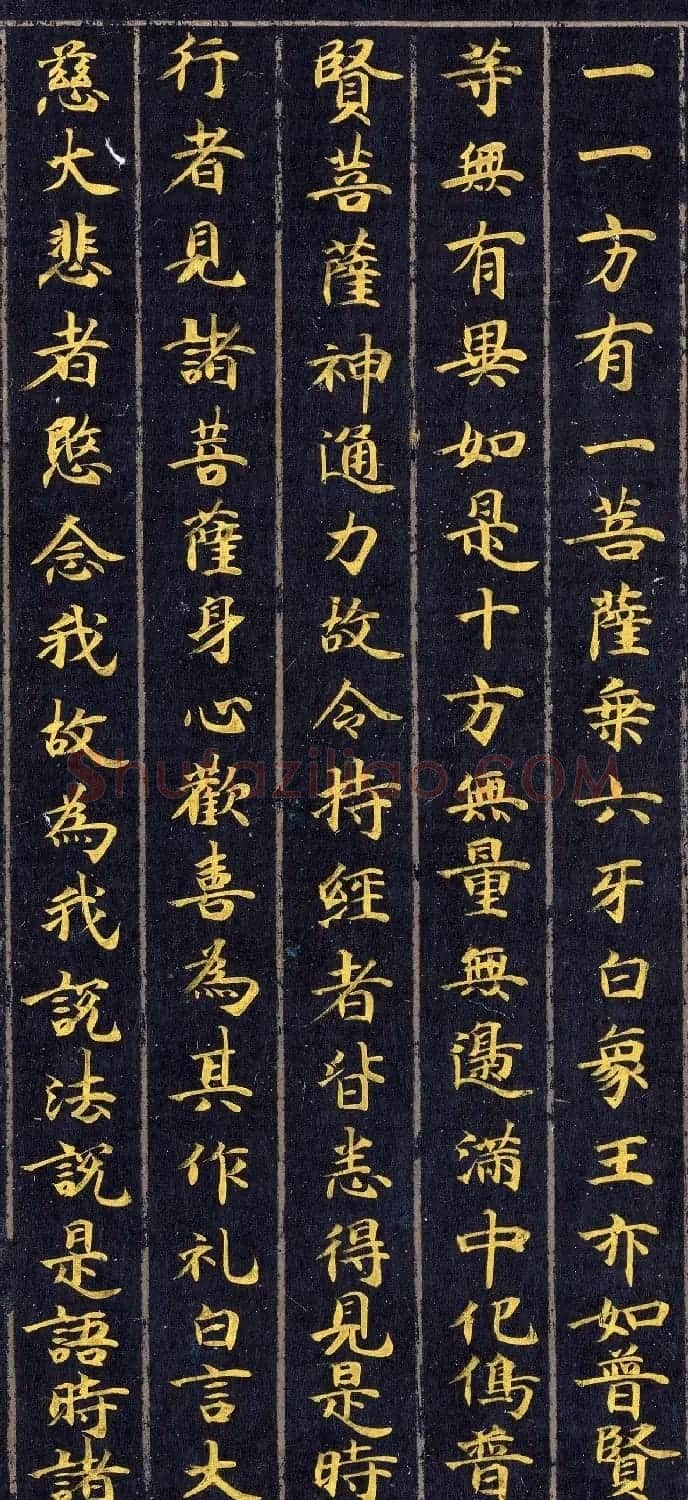 一一方有一菩薩乗六牙白象王亦如普賢
等無有異如是十方無量無邊滿中化像普
賢菩薩神通力故令持經者皆悉得見是時
行者見諸菩薩身心歡喜為其作礼白言大
慈大悲者愍念我故為我説法説是語時諸
Shufaziliao.COM